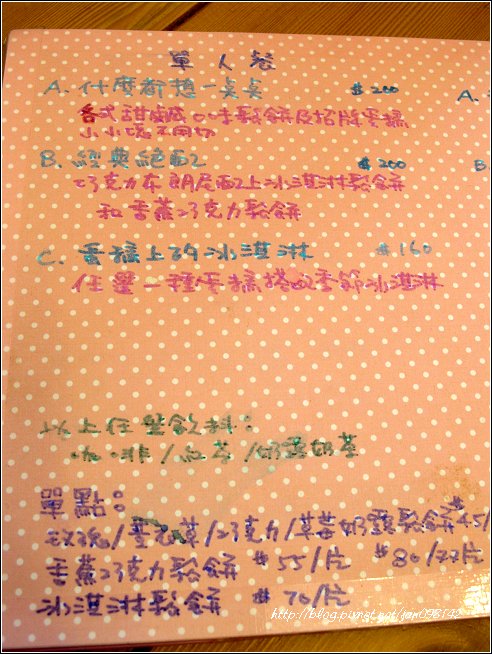 單人餐
A. 什麼都想一桌桌 $200
各式甜鹹口味鬆餅及招牌蛋糕
小小塊不同切
B. 經典絕配 $200
巧克力布朗尼配上冰淇淋鬆餅
和香蕉巧克力鬆餅
C. 蛋糕上的冰淇淋 $160
任選一種蛋糕搭配季節冰淇淋
以上任選飲料:
咖啡/紅茶/奶露奶茶
單點:
玫瑰//巧克力/草莓奶露鬆餅 $45/
香蕉巧克力鬆餅 $55/片 $80/2片
冰淇淋鬆餅 $70/片
http://blog.pixnet.net/jan098142
A.
B.